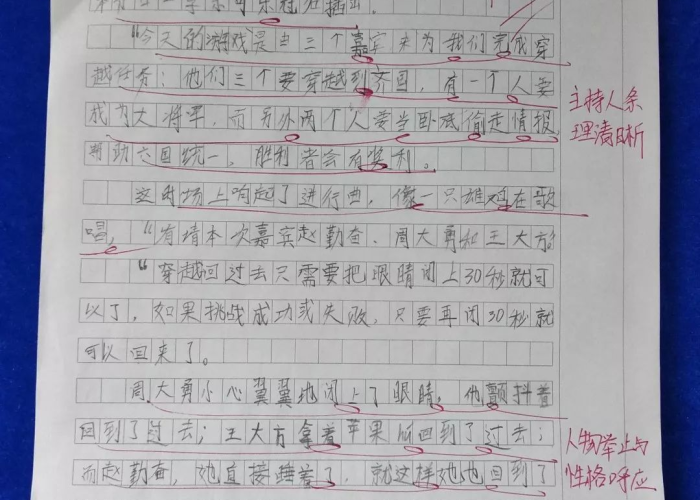 "今天的游戏是当三个嘉宾来为我们完成穿
越任务:他们三个要穿越到齐国,有一个人要
成为大将军,而另外两个人要当卧底偷走情报,
帮助六国统一,胜利者会有奖利。
主持人条
理清晰
这时场上响起了进行曲,像一只雄鸡在歌
唱,"有请本次嘉宾赵勤奋、周大勇和王大方
"穿越回过去只需要把眼睛闭上30秒就可
以了,如果挑战成功或失败,只要再闭30秒就
可以回来了。
周大勇小心翼翼地闭上了眼睛,他颤抖着
回到了过去;王大方拿着苹果回到了过去;
而赵勤奋,她直接睡着了,就这样她也回到了
人物举止与
性格呼应